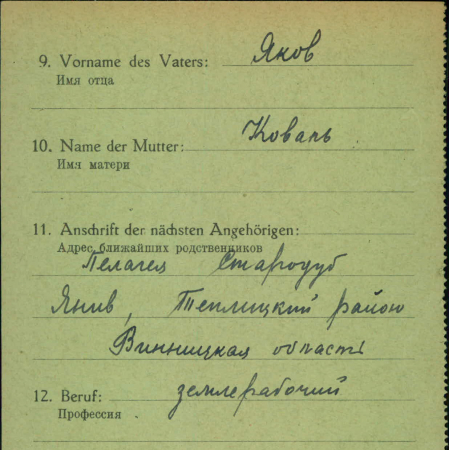 9. Vorname des Vaters: Яков
Имя отца
10. Name der Mutter: Коваль
Имя матери
11. Anschrift der nächsten Angehörigen:
Адрес ближайших родственников
Пелагея Стародуб
Янив, Теплицкий району
Винницкая область
12. Beruf: землерабочий
Профессия